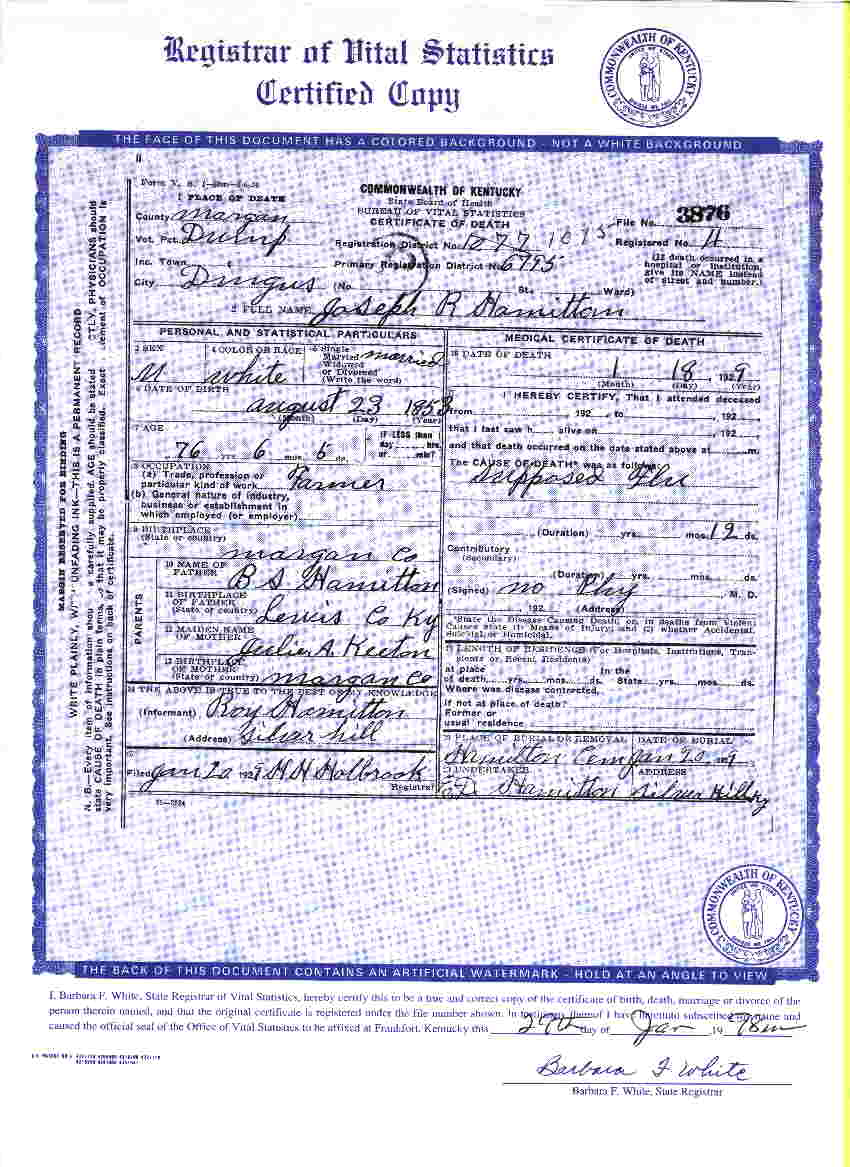 Registrar of Vital Statistics
Certified Copy
COMMONWEALTH OF KENTUCKY
THE FACE OF THIS DOCUMENT HAS A COLORED BACKGROUND - NOT A WHITE BACKGROUND
COMMONWEALTH OF KENTUCKY
State Board of Health
BUREAU OF VITAL STATISTICS
CERTIFICATE OF DEATH
1 PLACE OF DEATH
County Margan
Vot. Pct.
Inc. Town
City Dingus (No. St. Ward)
Registration District No. 1277 1015
Primary Registration District No 6795
File No. 3876
Registered No. 4
(If death occurred in a
hospital or institution,
give its NAME instead
of street and number.)
2 FULL NAME Joseph R Hamilton
PERSONAL AND STATISTICAL PARTICULARS
3 SEX M
4 COLOR OR RACE white
5 Single
Married
Widowed
or Divorced
(Write the word) married
6 DATE OF BIRTH
august 23 1853
(Month) (Day) (Year)
7 AGE
76 yrs. 6 mos. 5 ds.
IF LESS than
day hrs.
or min?
8 OCCUPATION
(a) Trade, profession or
particular kind of work Farmer
(b) General nature of industry,
business or establishment in
which employed (or employer)
9 BIRTHPLACE
(State or country)
margan Co
PARENTS
10 NAME OF
FATHER B S Hamilton
11 BIRTHPLACE
OF FATHER
(State or country) Lewis Co Ky
12 MAIDEN NAME
OF MOTHER Julie A. Keeton
13 BIRTHPLACE
OF MOTHER
(State or country) margan Co
14 THE ABOVE IS TRUE TO THE BEST OF MY KNOWLEDGE
(Informant) Roy Hamilton
(Address) Silver hill
Filed Jan 20 1929 Holbrook
Registrar
MEDICAL CERTIFICATE OF DEATH
16 DATE OF DEATH
1 18 1929
(Month) (Day) (Year)
I HEREBY CERTIFY, That I attended deceased
from 192 to 192
that I last saw h alive on 192
and that death occurred on the date stated above at m.
The CAUSE OF DEATH* was as follows:
Supposed Flu
(Duration) yrs. mos. 12 ds.
Contributory
(Secondary)
(Duration) yrs. mos. ds.
(Signed) no Phy M. D.
192 (Address)
*State the Disease Causing Death, or, in deaths from Violent
Causes state (1) Means of Injury; and (2) whether Accidental,
Suicidal or Homicidal.
LENGTH OF RESIDENCE (For Hospitals, Institutions, Tran-
sients or Recent Residents)
At place In the
of death yrs. mos. ds. State yrs. mos. ds.
Where was disease contracted,
If not at place of death?
Former or
usual residence
PLACE OF BURIAL OR REMOVAL DATE OF BURIAL
Hamilton Cem Jan 20 1929
UNDERTAKER ADDRESS
Hamilton Silver Hill Ky
MARGIN RESERVED FOR BINDING
WRITE PLAINLY, WITH UNFADING INK—THIS IS A PERMANENT RECORD
COMMONWEALTH OF KENTUCKY
THE BACK OF THIS DOCUMENT CONTAINS AN ARTIFICIAL WATERMARK - HOLD AT AN ANGLE TO VIEW
I, Barbara F. White, State Registrar of Vital Statistics, hereby certify this to be a true and correct copy of the certificate of birth, death, marriage or divorce of the
person therein named, and that the original certificate is registered under the file number shown. In testimony thereof I have hereunto subscribed my name and
caused the official seal of the Office of Vital Statistics to be affixed at Frankfort, Kentucky this 29th day of Jan 19
Barbara F White
Barbara F. White, State Registrar